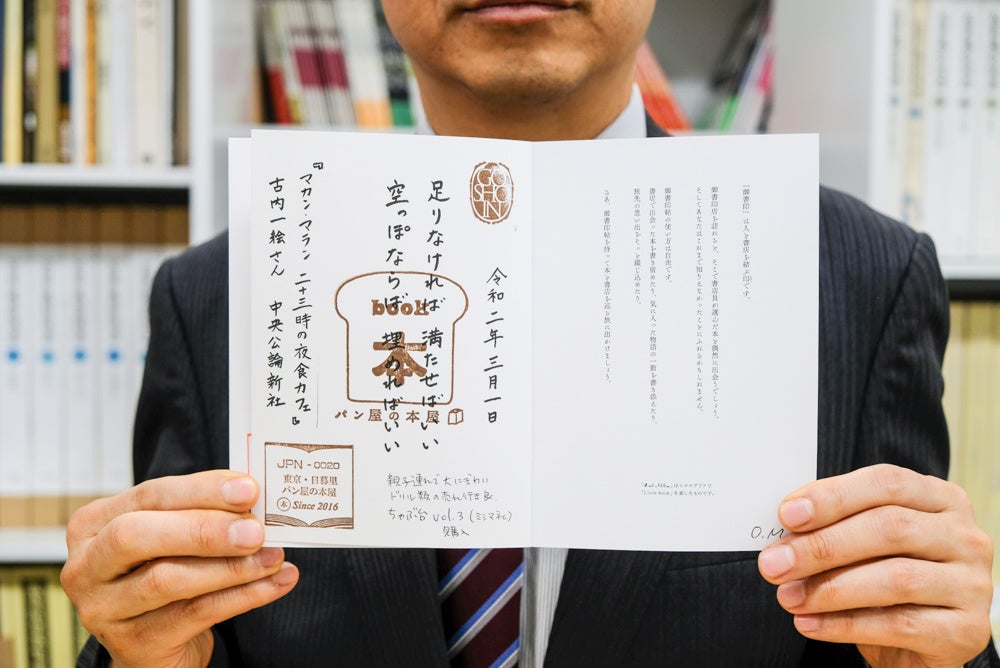 「御書印」は人と書店を結ぶ印です。
御書印店を訪れると、そこで書店員が選んだ本と偶然に出会うでしょう。
そしてあなたはこれまで知りえなかったことにふれるかもしれません。
御書印帖の使い方は自由です。
書店で出会った本を書き留めたり、気に入った物語の一節を書き添えたり、
旅先の思い出をそっと綴じ込めたり。
さあ、御書印帖を持って本と書店を巡る旅に出かけましょう。
「I love book」を表したものです。
O.M
GO
SHO
IN
令和二年三月一日
足りなければ 満たせばいい
空っぽならば 埋めればいい
『マカン・マラン 二十三時の夜食カフェ』
古内一絵さん 中央公論新社
book
本
パン屋の本屋
JPN-0020
東京・日暮里
パン屋の本屋
本 Since 2016
親子連れで大にぎわい
ドリル類の売れ行き良
ちゃぶ台 vol.3 (ミシマ社)
購入